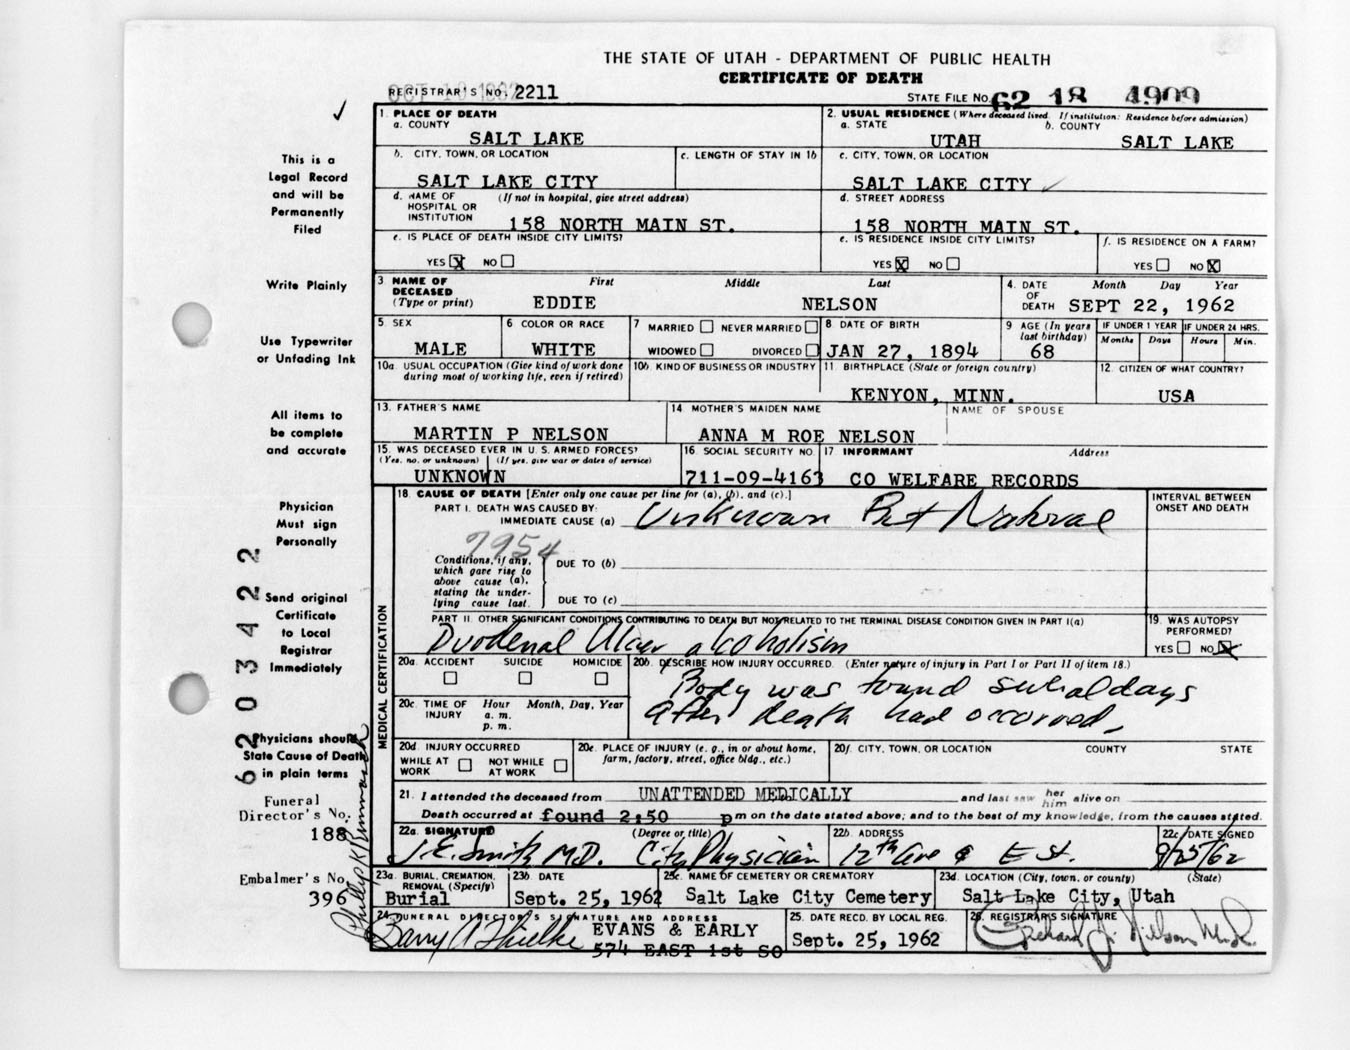 THE STATE OF UTAH - DEPARTMENT OF PUBLIC HEALTH
CERTIFICATE OF DEATH
REGISTRAR'S NO. 2211
STATE FILE NO. 62 18 4909
This is a
Legal Record
and will be
Permanently
Filed
Write Plainly
Use Typewriter
or Unfading Ink
All items to
be complete
and accurate
Physician
Must sign
Personally
Send original
Certificate
to Local
Registrar
Immediately
Physicians should
State Cause of Death
in plain terms
Funeral
Director's No.
188
Embalmer's No.
396
62 03422
1. PLACE OF DEATH
a. COUNTY
SALT LAKE
2. USUAL RESIDENCE (Where deceased lived. If institution: Residence before admission)
a. STATE b. COUNTY
UTAH SALT LAKE
b. CITY, TOWN, OR LOCATION
SALT LAKE CITY
c. LENGTH OF STAY IN 1b
c. CITY, TOWN, OR LOCATION
SALT LAKE CITY
d. NAME OF (If not in hospital, give street address)
HOSPITAL OR
INSTITUTION 158 NORTH MAIN ST.
d. STREET ADDRESS
158 NORTH MAIN ST.
e. IS PLACE OF DEATH INSIDE CITY LIMITS?
YES X NO
e. IS RESIDENCE INSIDE CITY LIMITS?
YES X NO
f. IS RESIDENCE ON A FARM?
YES NO X
3 NAME OF First Middle Last
DECEASED
(Type or print) EDDIE NELSON
4. DATE Month Day Year
OF
DEATH SEPT 22, 1962
5 SEX
MALE
6 COLOR OR RACE
WHITE
7 MARRIED NEVER MARRIED
WIDOWED DIVORCED
8 DATE OF BIRTH
JAN 27, 1894
9 AGE (In years
last birthday)
68
IF UNDER 1 YEAR IF UNDER 24 HRS.
Months Days Hours Min.
10a. USUAL OCCUPATION (Give kind of work done
during most of working life, even if retired)
10b. KIND OF BUSINESS OR INDUSTRY
11. BIRTHPLACE (State or foreign country)
KENYON, MINN.
12. CITIZEN OF WHAT COUNTRY?
USA
13. FATHER'S NAME
MARTIN P NELSON
14 MOTHER'S MAIDEN NAME
ANNA M ROE NELSON
NAME OF SPOUSE
15. WAS DECEASED EVER IN U. S. ARMED FORCES?
(Yes, no, or unknown) (If yes, give war or dates of service)
UNKNOWN
16. SOCIAL SECURITY NO.
711-09-4163
17 INFORMANT Address
CO WELFARE RECORDS
MEDICAL CERTIFICATION
18. CAUSE OF DEATH [Enter only one cause per line for (a), (b), and (c).]
PART I. DEATH WAS CAUSED BY:
IMMEDIATE CAUSE (a) Unknown But Natural
INTERVAL BETWEEN
ONSET AND DEATH
7954
Conditions, if any,
which gave rise to
above cause (a),
stating the under-
lying cause last.
DUE TO (b)
DUE TO (c)
PART II. OTHER SIGNIFICANT CONDITIONS CONTRIBUTING TO DEATH BUT NOT RELATED TO THE TERMINAL DISEASE CONDITION GIVEN IN PART I(a)
Duodenal Ulcer alcoholism
19. WAS AUTOPSY
PERFORMED?
YES NO X
20a. ACCIDENT SUICIDE HOMICIDE
20b. DESCRIBE HOW INJURY OCCURRED. (Enter nature of injury in Part I or Part II of item 18.)
Body was found several days
after death had occurred.
20c. TIME OF Hour Month, Day, Year
INJURY a. m.
p. m.
20d. INJURY OCCURRED
WHILE AT NOT WHILE
WORK AT WORK
20e. PLACE OF INJURY (e. g., in or about home,
farm, factory, street, office bldg., etc.)
20f. CITY, TOWN, OR LOCATION COUNTY STATE
21. I attended the deceased from UNATTENDED MEDICALLY and last saw her
him alive on
Death occurred at found 2:50 pm on the date stated above; and to the best of my knowledge, from the causes stated.
22a. SIGNATURE (Degree or title)
J. E. Smith M.D. City Physician
22b. ADDRESS
12th Ave & E St.
22c. DATE SIGNED
9/25/62
23a. BURIAL, CREMATION,
REMOVAL (Specify)
Burial
23b DATE
Sept. 25, 1962
23c. NAME OF CEMETERY OR CREMATORY
Salt Lake City Cemetery
23d. LOCATION (City, town, or county) (State)
Salt Lake City, Utah
24 FUNERAL DIRECTOR'S SIGNATURE AND ADDRESS
EVANS & EARLY
574 EAST 1st SO
25. DATE RECD. BY LOCAL REG.
Sept. 25, 1962
26. REGISTRAR'S SIGNATURE